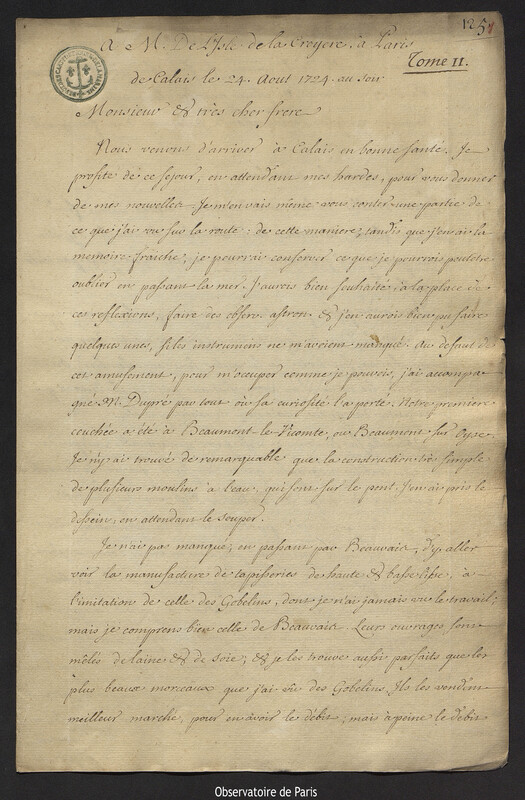 125
A M. De L'Isle de la Croyere, à Paris
Tome II.
de Calais le 24. Aout 1724. au soir
Monsieur & très cher frere
Nous venons d'arriver à Calais en bonne santé. Je
profite de ce sejour, en attendant mes hardes, pour vous donner
de mes nouvelles. Je m'en vais même vous conter une partie de
ce que j'ai vu sur la route: de cette maniere, tandis que j'en ai la
memoire fraiche, je pourrai conserver ce que je pourrois peutetre
oublier en passant la mer. J'aurois bien souhaité, à la place de
ces reflexions, faire des observ. astron. & j'en aurois bien pu faire
quelques unes, si les instrumens ne m'avoient manqué. Au defaut de
cet amusement, pour m'occuper comme je pouvois, j'ai accompa-
gné M. Dupré par tout où sa curiosité l'a porté. Notre premiere
couchée a été à Beaumont-le-Vicomte, ou Beaumont sur Oyse.
Je n'y ai trouvé de remarquable que la construction très simple
de plusieurs moulins à l'eau, qui sont sur le pont. J'en ai pris le
dessein, en attendant le souper.
Je n'ai pas manqué, en passant par Beauvais, d'y aller
voir la manufacture de tapisseries de haute & basse lisse, à
l'imitation de celle des Gobelins, dont je n'ai jamais vu le travail;
mais je comprens bien celle de Beauvais. Leurs ouvrages sont
mêlés de laine & de soie; & je les trouve aussi parfaits que les
plus beaux morceaux que j'ai vûs des Gobelins. Ils les vendent
meilleur marché, pour en avoir le debit; mais à peine le debit
Observatoire de Paris